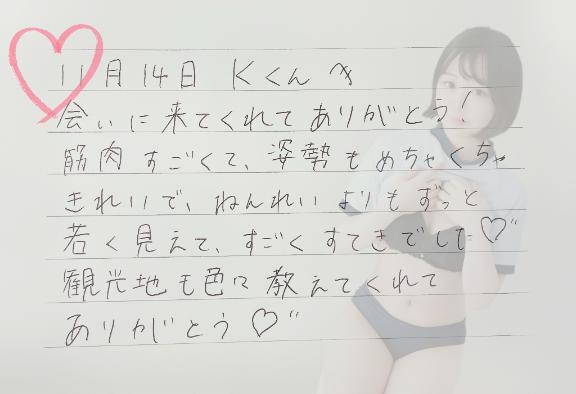 11月14日 Kくんへ
会いに来てくれてありがとう!
筋肉すごくて、姿勢もめちゃくちゃ
きれいで、ねんれいよりもずっと
若く見えて、すごくすてきでした♡"
観光地も色々教えてくれて
ありがとう♡"